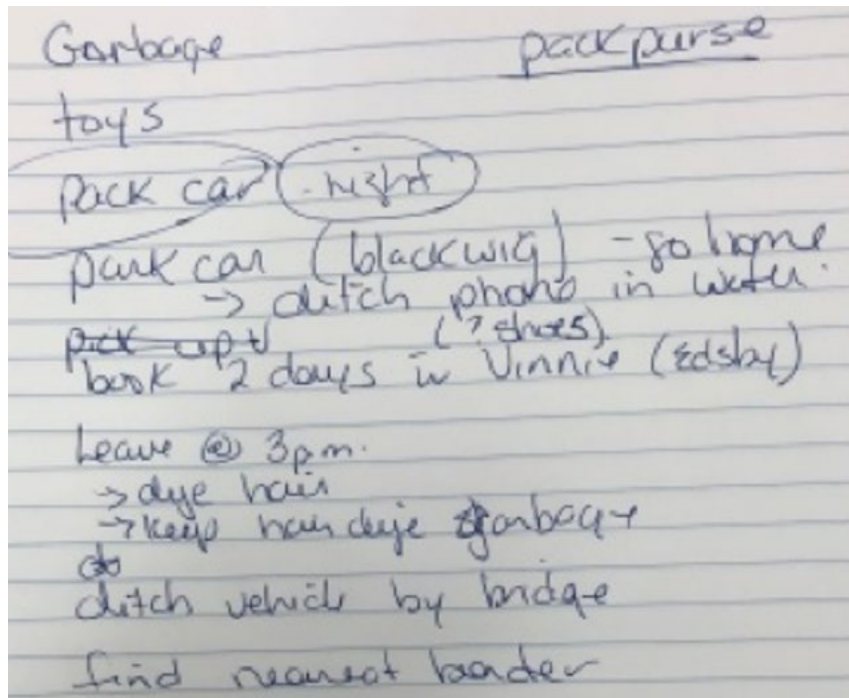 Garbage
pack purse
toys
pack car night
park car (black wig) - go home
→ ditch phone in water.
pick up
(? shoes)
book 2 days in Vinnie (Edsby)
Leave @ 3pm.
→ dye hair
→ keep hair dye garbage
do
ditch vehicle by bridge
find nearest border